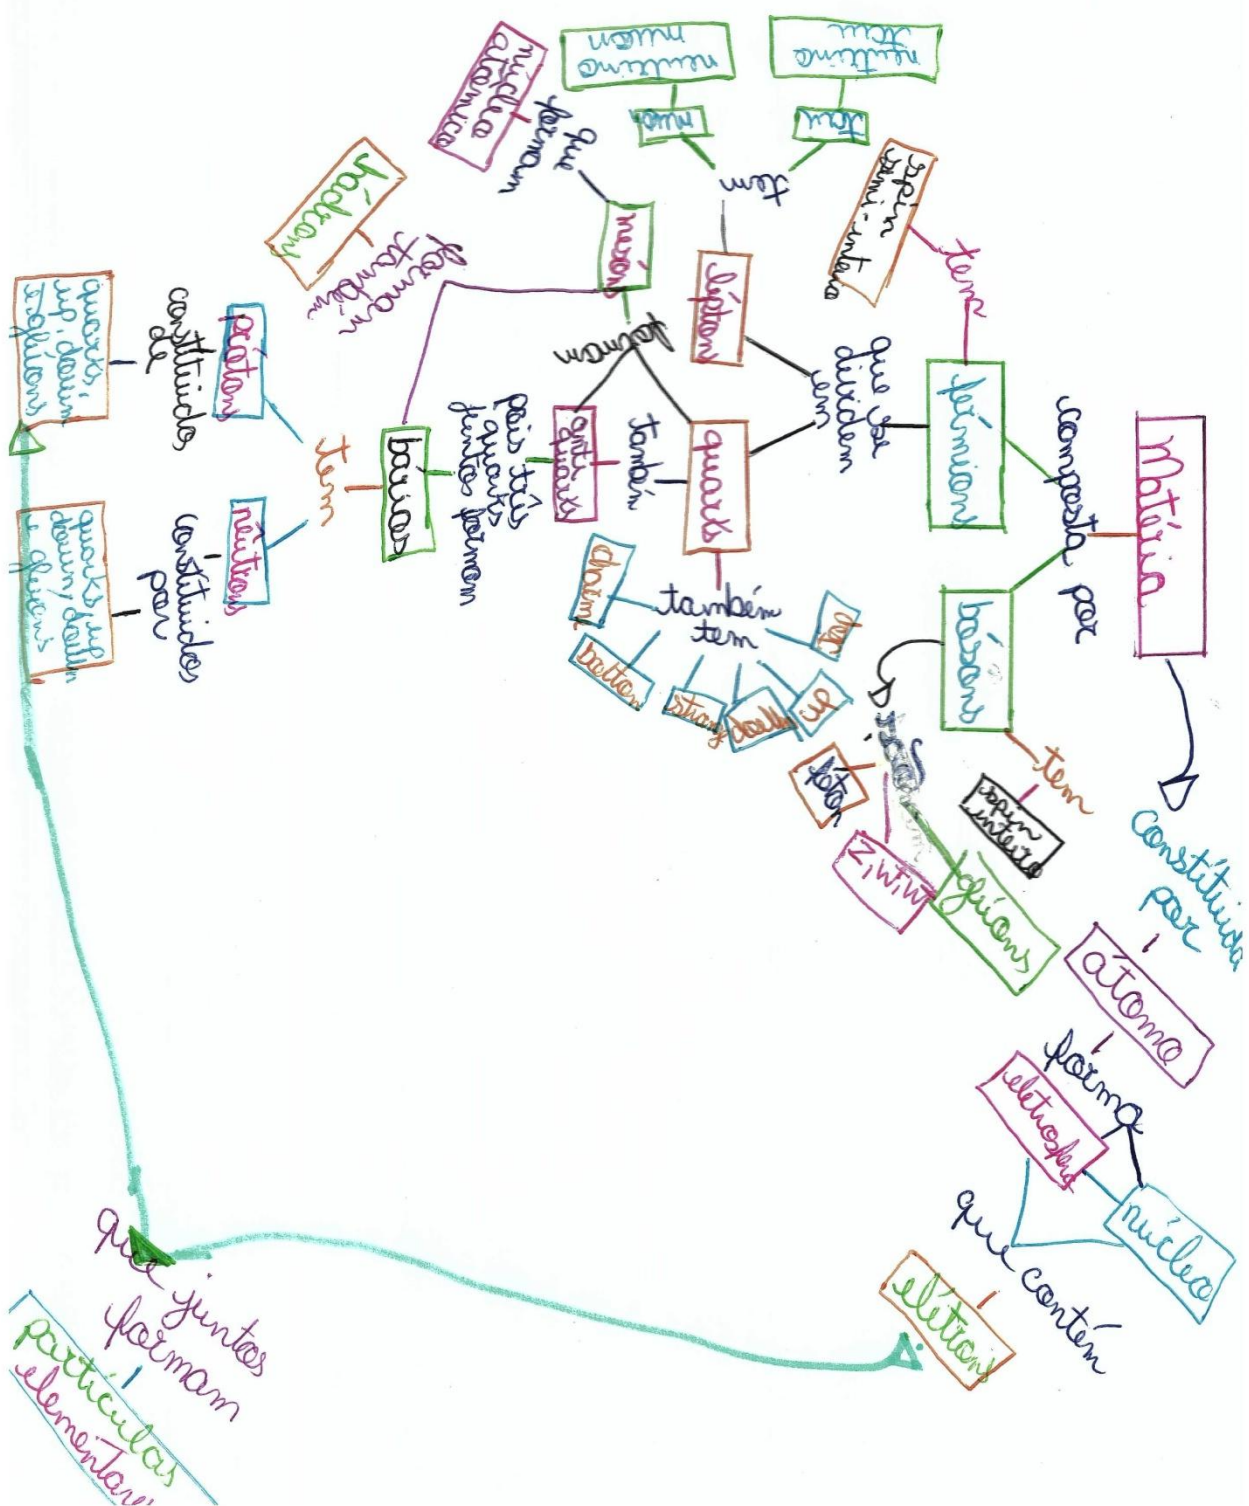 Matéria
composta por
férmions
tem
spin
semi-inteiro
que se
dividem
em
lépton
tem
tau
neutrino
tau
muon
neutrino
muon
quarks
também
anti
quarks
formam
mésons
que
formam
núcleo
atômico
formam
também
hádrons
pois três
quarks
juntos formam
bárions
tem
prótons
constituídos
de
quarks,
up, down
e glúons
nêutrons
constituídos
por
quarks, up
down, down
e glúons
também
tem
charm
bottom
strang
down
up
top
bósons
tem
spin
inteiro
fóton
Z, W+, W-
glúons
constituída
por
átomo
forma
eletrosfera
núcleo
que contém
elétrons
que juntos
formam
partículas
elementares